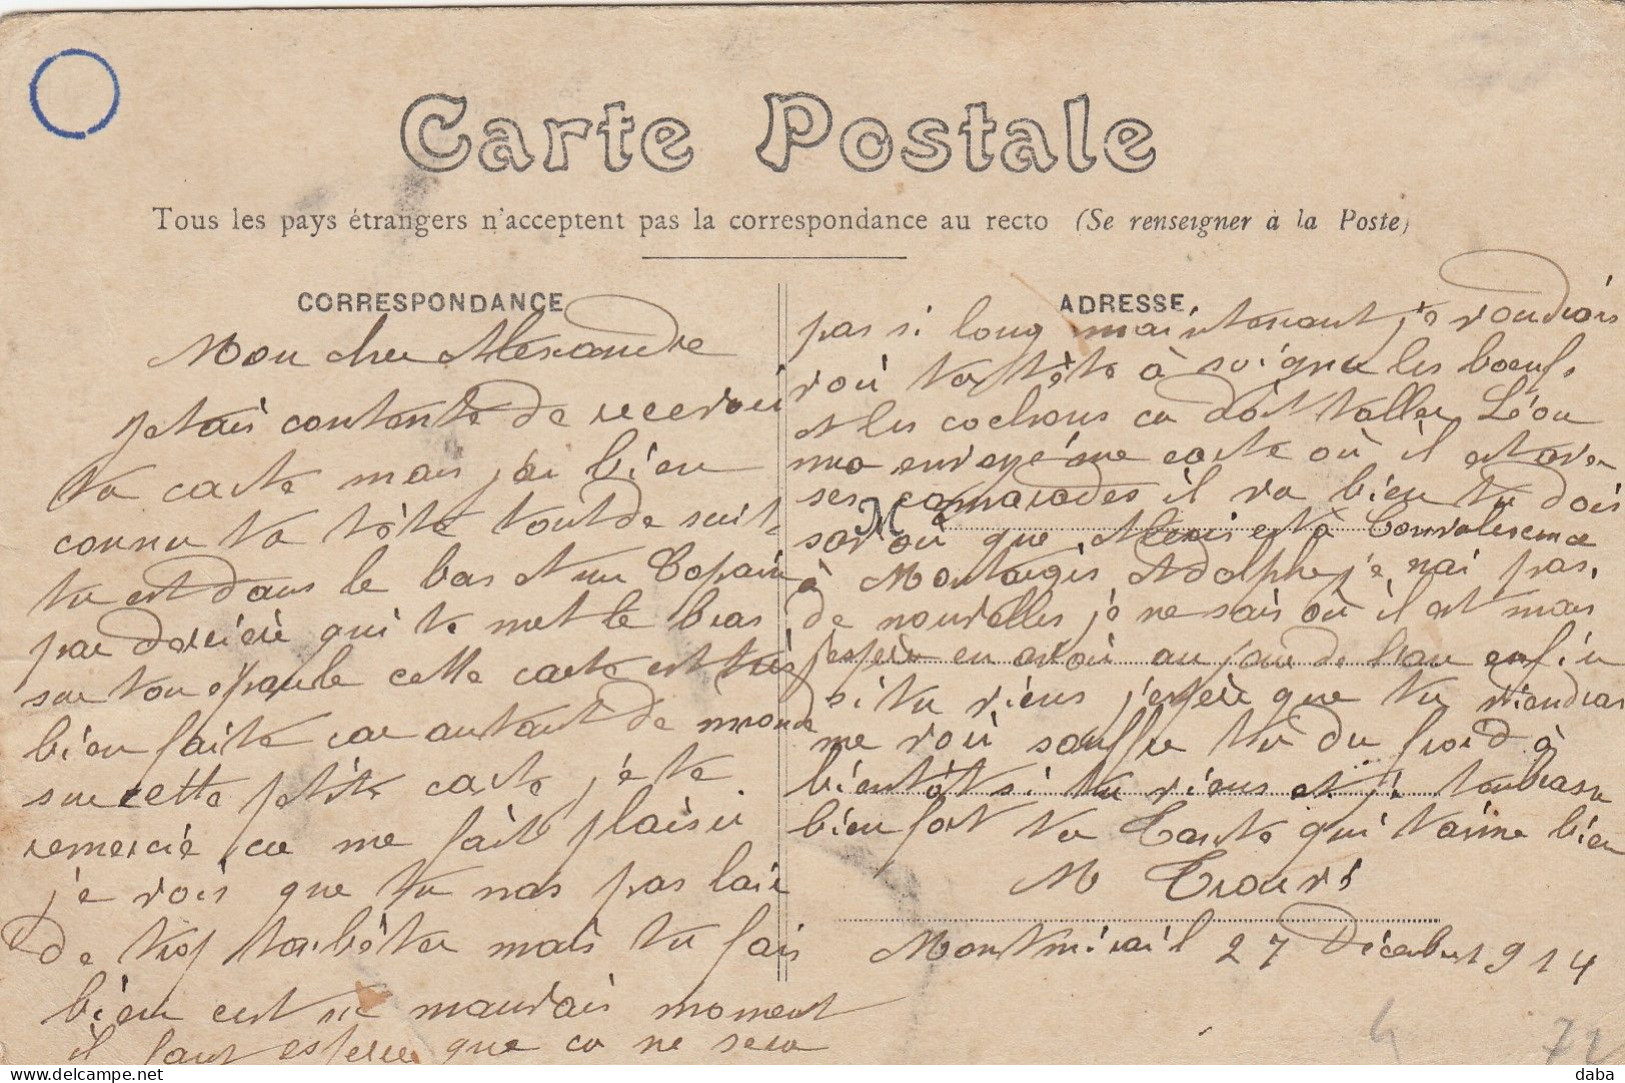 Carte Postale
Tous les pays étrangers n'acceptent pas la correspondance au recto (Se renseigner à la Poste)
CORRESPONDANCE
Mon cher Alexandre
jetais contente de recevoir
ta carte mais j'ai bien
connu ta tête tout de suit
tu est dans le bas et un Copain
par derière qui te met le bras
sur ton épaule cette carte est très
bien faite car autant de monde
sur cette petite carte j'e te
remercie ca me fait plaisir
j'e vois que tu nas pas lair
de trop tarbêter mais tu fais
bien cest ne mauvais moment
il faut esperer que ca ne sera
ADRESSE
pas si long maintenant je voudrais
voir ta tête à soigner les boeufs
et les cochons ca doit taller Léon
ma envoyé une carte où il est avec
ses camarades il va bien tu dois
M
savoir que Alexis est à Convalescence
à Montargis Adolphe j'e nai pas
de nouvelles je ne sais où il est mais
jespère en avoir au jour de lan enfin
si tu viens j'espère que tu viendras
me voir souffre tu du froid à
bientôt si tu viens et je tembrasse
bien fort ta Tante qui taime bien
M
Montmirail 27 Décembre 1914
4 72
daba
www.delcampe.net